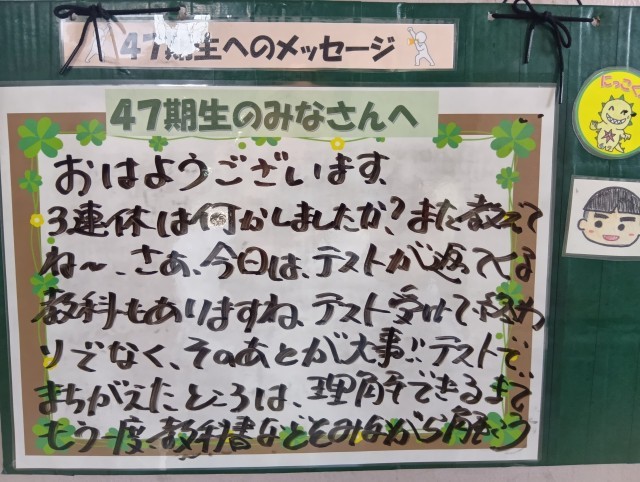 47期生へのメッセージ
47期生のみなさんへ
おはようございます。
3連休は何かしましたか?また教えて
ね〜、さあ、今日は、テストが返ってくる
教科もありますね、テスト受けて終わ
りでなく、そのあとが大事!!テストで、
まちがえたところは、理解できるまで
もう一度、教科書などをみながら解こう
にっこくん